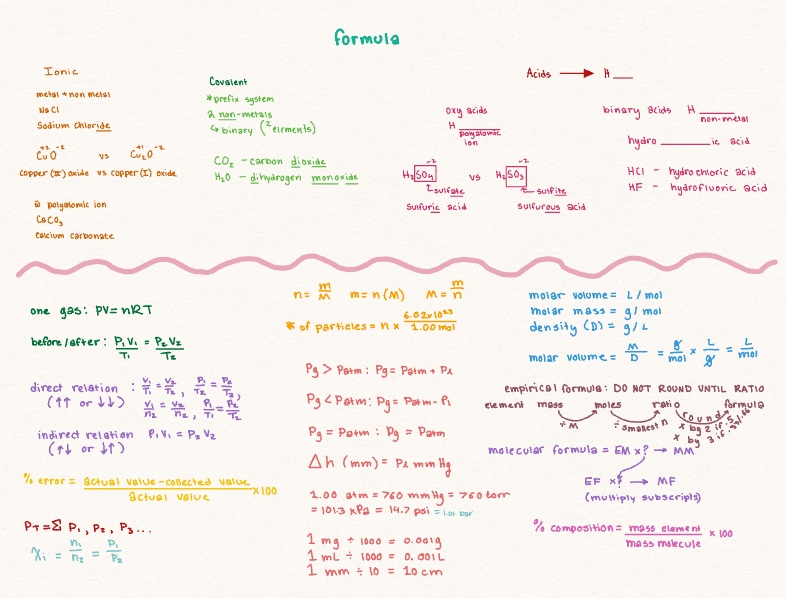 formula
Ionic
metal + non metal
NaCl
Sodium chloride
+2 -2 +1 -2
CuO vs Cu₂O
copper (II) oxide vs copper (I) oxide
@ polyatomic ion
CaCO₃
calcium carbonate
Covalent
* prefix system
2 non-metals
↳ binary (2 elements)
CO₂ - carbon dioxide
H₂O - dihydrogen monoxide
Acids → H __
oxy acids
H polyatomic ion
-2 -2
H₂SO₄ vs H₂SO₃
sulfate sulfite
sulfuric acid sulfurous acid
binary acids H ____
non-metal
hydro ______ ic acid
HCl - hydrochloric acid
HF - hydrofluoric acid
one gas: PV=nRT
before/after: P₁V₁/T₁ = P₂V₂/T₂
direct relation : V₁/T₁ = V₂/T₂, P₁/T₁ = P₂/T₂,
(↑↑ or ↓↓) V₁/n₁ = V₂/n₂, P₁/T₁ = P₂/T₂
indirect relation P₁V₁ = P₂V₂
(↑↓ or ↓↑)
% error = actual value-collected value / actual value ×100
PT=Σ P₁, P₂, P₃...
χi = n₁/n₂ = P₁/P₂
n= m/M m= n(M) M= m/n
# of particles = n × 6.02x10²³ / 1.00 mol
Pg > Patm : Pg= Patm + Pl
Pg < Patm: Pg= Patm- Pl
Pg = Patm : Pg = Patm
Δh (mm) = Pl mmHg
1.00 atm = 760 mmHg = 760 torr
= 101.3 kPa = 14.7 psi = 1.01 bar
1 mg ÷ 1000 = 0.001g
1 mL ÷ 1000 = 0.001L
1 mm ÷ 10 = 10 cm
molar volume = L / mol
molar mass = g / mol
density (D) = g / L
molar volume = M/D = g/mol × L/g = L/mol
empirical formula: DO NOT ROUND UNTIL RATIO
element mass moles ratio formula
÷ M ÷ smallest n round
× by 2 if .5
× by 3 if .33/.66
molecular formula = EM ×? → MM
EF ×? → MF
(multiply subscripts)
% composition = mass element / mass molecule × 100